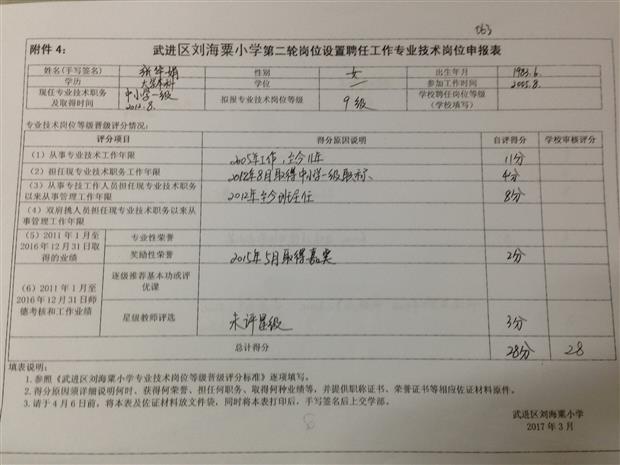 163
附件 4：
武进区刘海粟小学第二轮岗位设置聘任工作专业技术岗位申报表
姓名(手写签名) 张华娟 性别 女 出生年月 1983.6.
学历 大学本科 学位 — 参加工作时间 2005.8.
现任专业技术职务及取得时间 中小学一级 2012.8. 拟报专业技术岗位等级 9级 学校聘任岗位等级（学校填写）
专业技术岗位等级晋级评分情况：
评分项目 得分原因说明 自评得分 学校审核评分
（1）从事专业技术工作年限 2005年工作，至今11年 11分
（2）担任现专业技术职务工作年限 2012年8月取得中小学一级职称、 4分
（3）从事专技工作人员担任现专业技术职务以来从事管理工作年限 2012年至今班主任 8分
（4）双肩挑人员担任现专业技术职务以来从事管理工作年限
（5）2011 年 1 月至 2016 年 12 月 31 日取得的业绩
专业性荣誉
奖励性荣誉 2015年5月取得嘉奖 2分
（6）2011 年 1 月至 2016 年 12 月 31 日师德考核和工作业绩
逐级推荐基本功或评优课
星级教师评选 未评星级 3分
总计得分 28分 28
填表说明：
1.参照《武进区刘海粟小学专业技术岗位等级晋级评分标准》逐项填写。
2.得分原因须详细说明何时、获得何荣誉、担任何职务、取得何种业绩等，并提供职称证书、荣誉证书等相应佐证材料原件。
3.请于 4 月 6 日前，将本表及佐证材料放文件袋，同时将本表打印后，手写签名后上交学部。
武进区刘海粟小学
2017 年 3 月